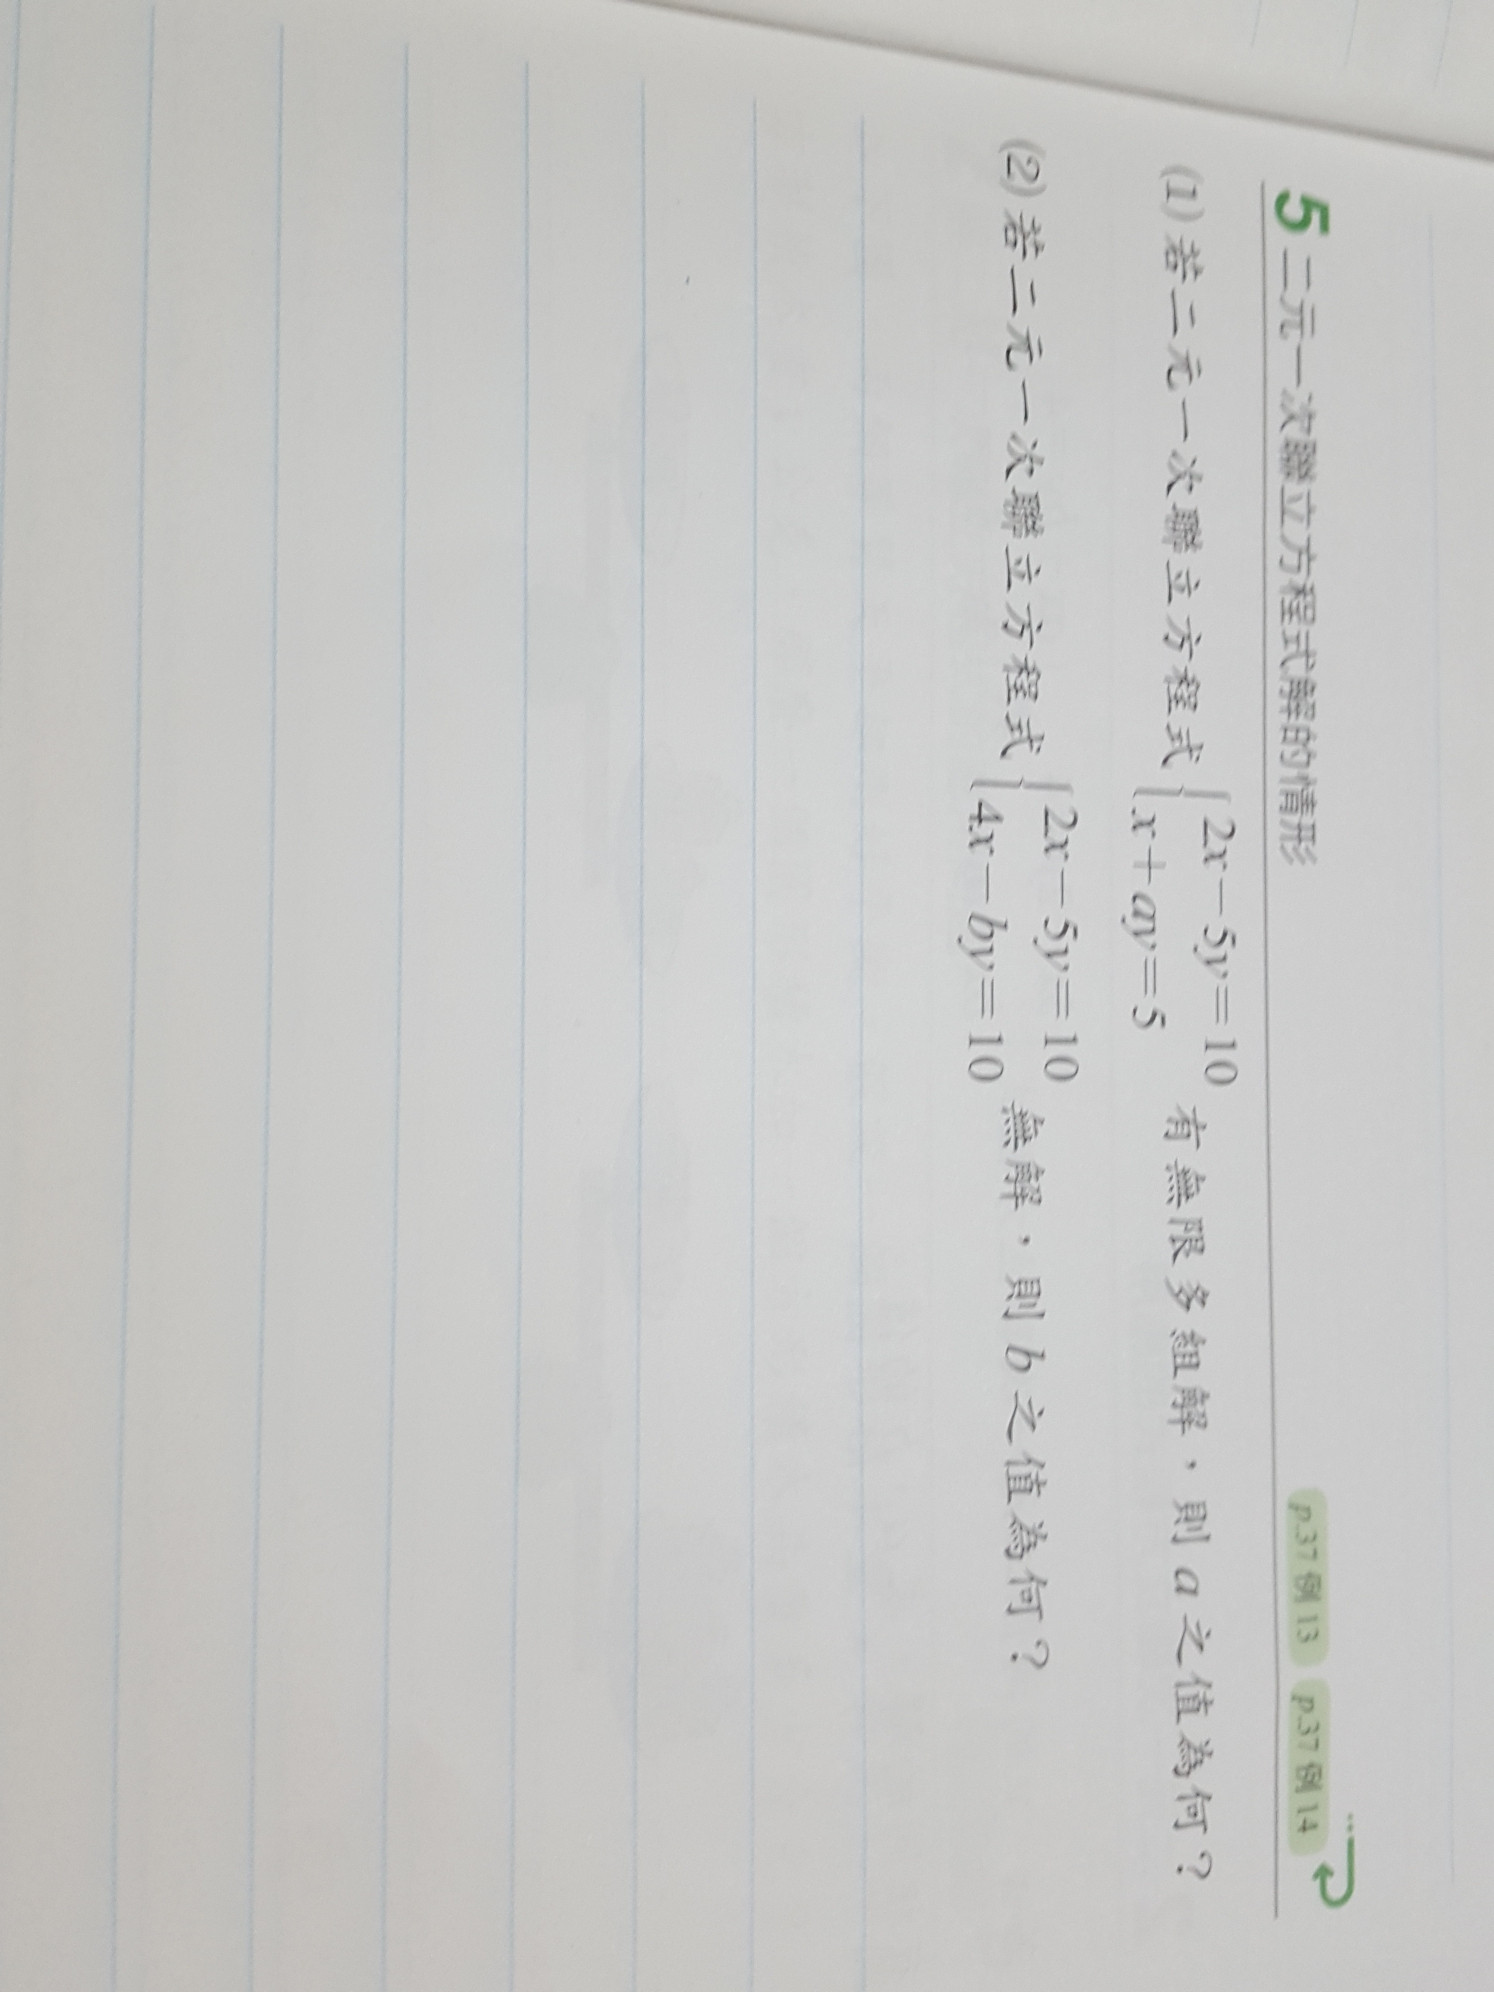 5 二元一次聯立方程式解的情形 p.37 例 13 p.37 例 14
(1) 若二元一次聯立方程式 { 2x－5y＝10
x＋ay＝5 有無限多組解，則 a 之值為何？
(2) 若二元一次聯立方程式 { 2x－5y＝10
4x－by＝10 無解，則 b 之值為何？